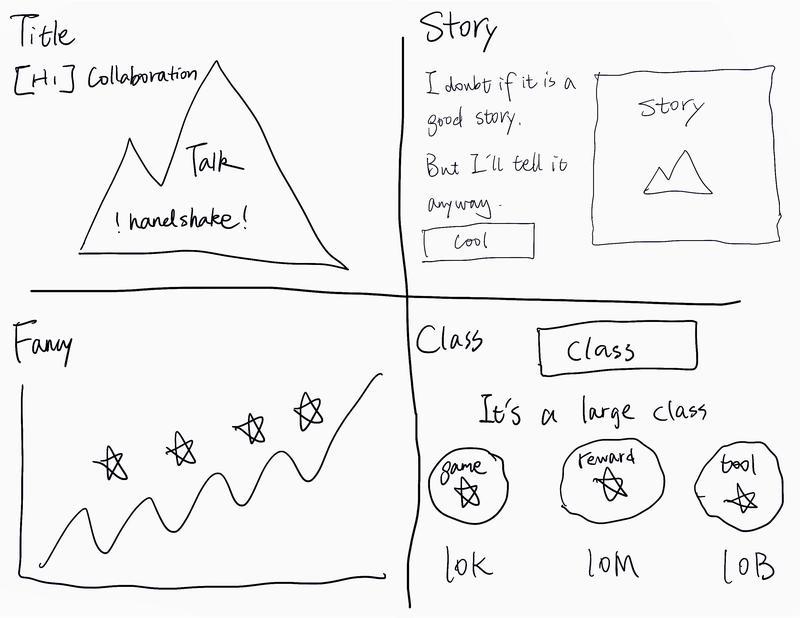 Title
[Hi] Collaboration
Talk
! handshake!
Story
I doubt if it is a
good story.
But I'll tell it
anyway.
Cool
Story
Fancy
Class
Class
It's a large class
game
reward
tool
10K
10M
10B